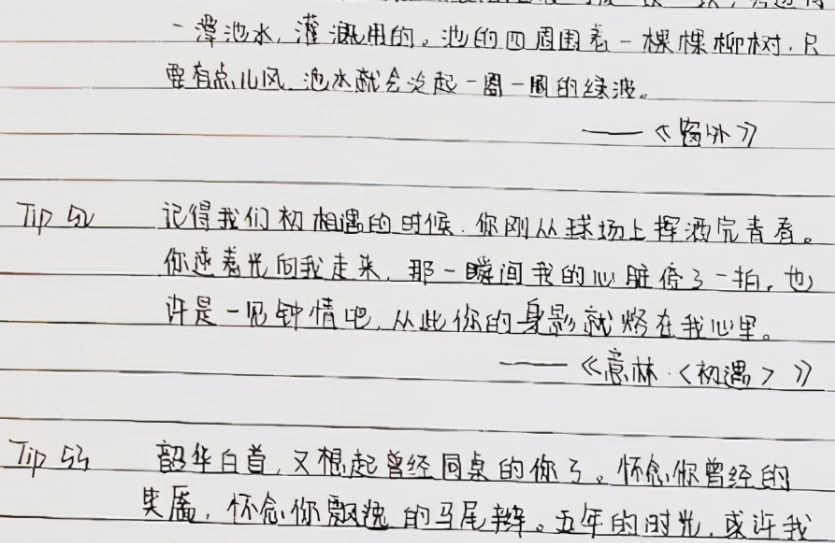 一潭池水，灌溉用的。池的四周围着一棵棵柳树，只
要有点儿风，池水就会炎起一圈一圈的绿波。
——《窗外》
Tip 52 记得我们初相遇的时候，你刚从球场上挥洒完青春。
你逆着光向我走来，那一瞬间我的心脏停了一拍，也
许是一见钟情吧，从此你的身影就烙在我心里。
——《意林·〈初遇〉》
Tip 53 韶华白首，又想起曾经同桌的你了。怀念你曾经的
笑靥，怀念你飘逸的马尾辫。五年的时光，或许我